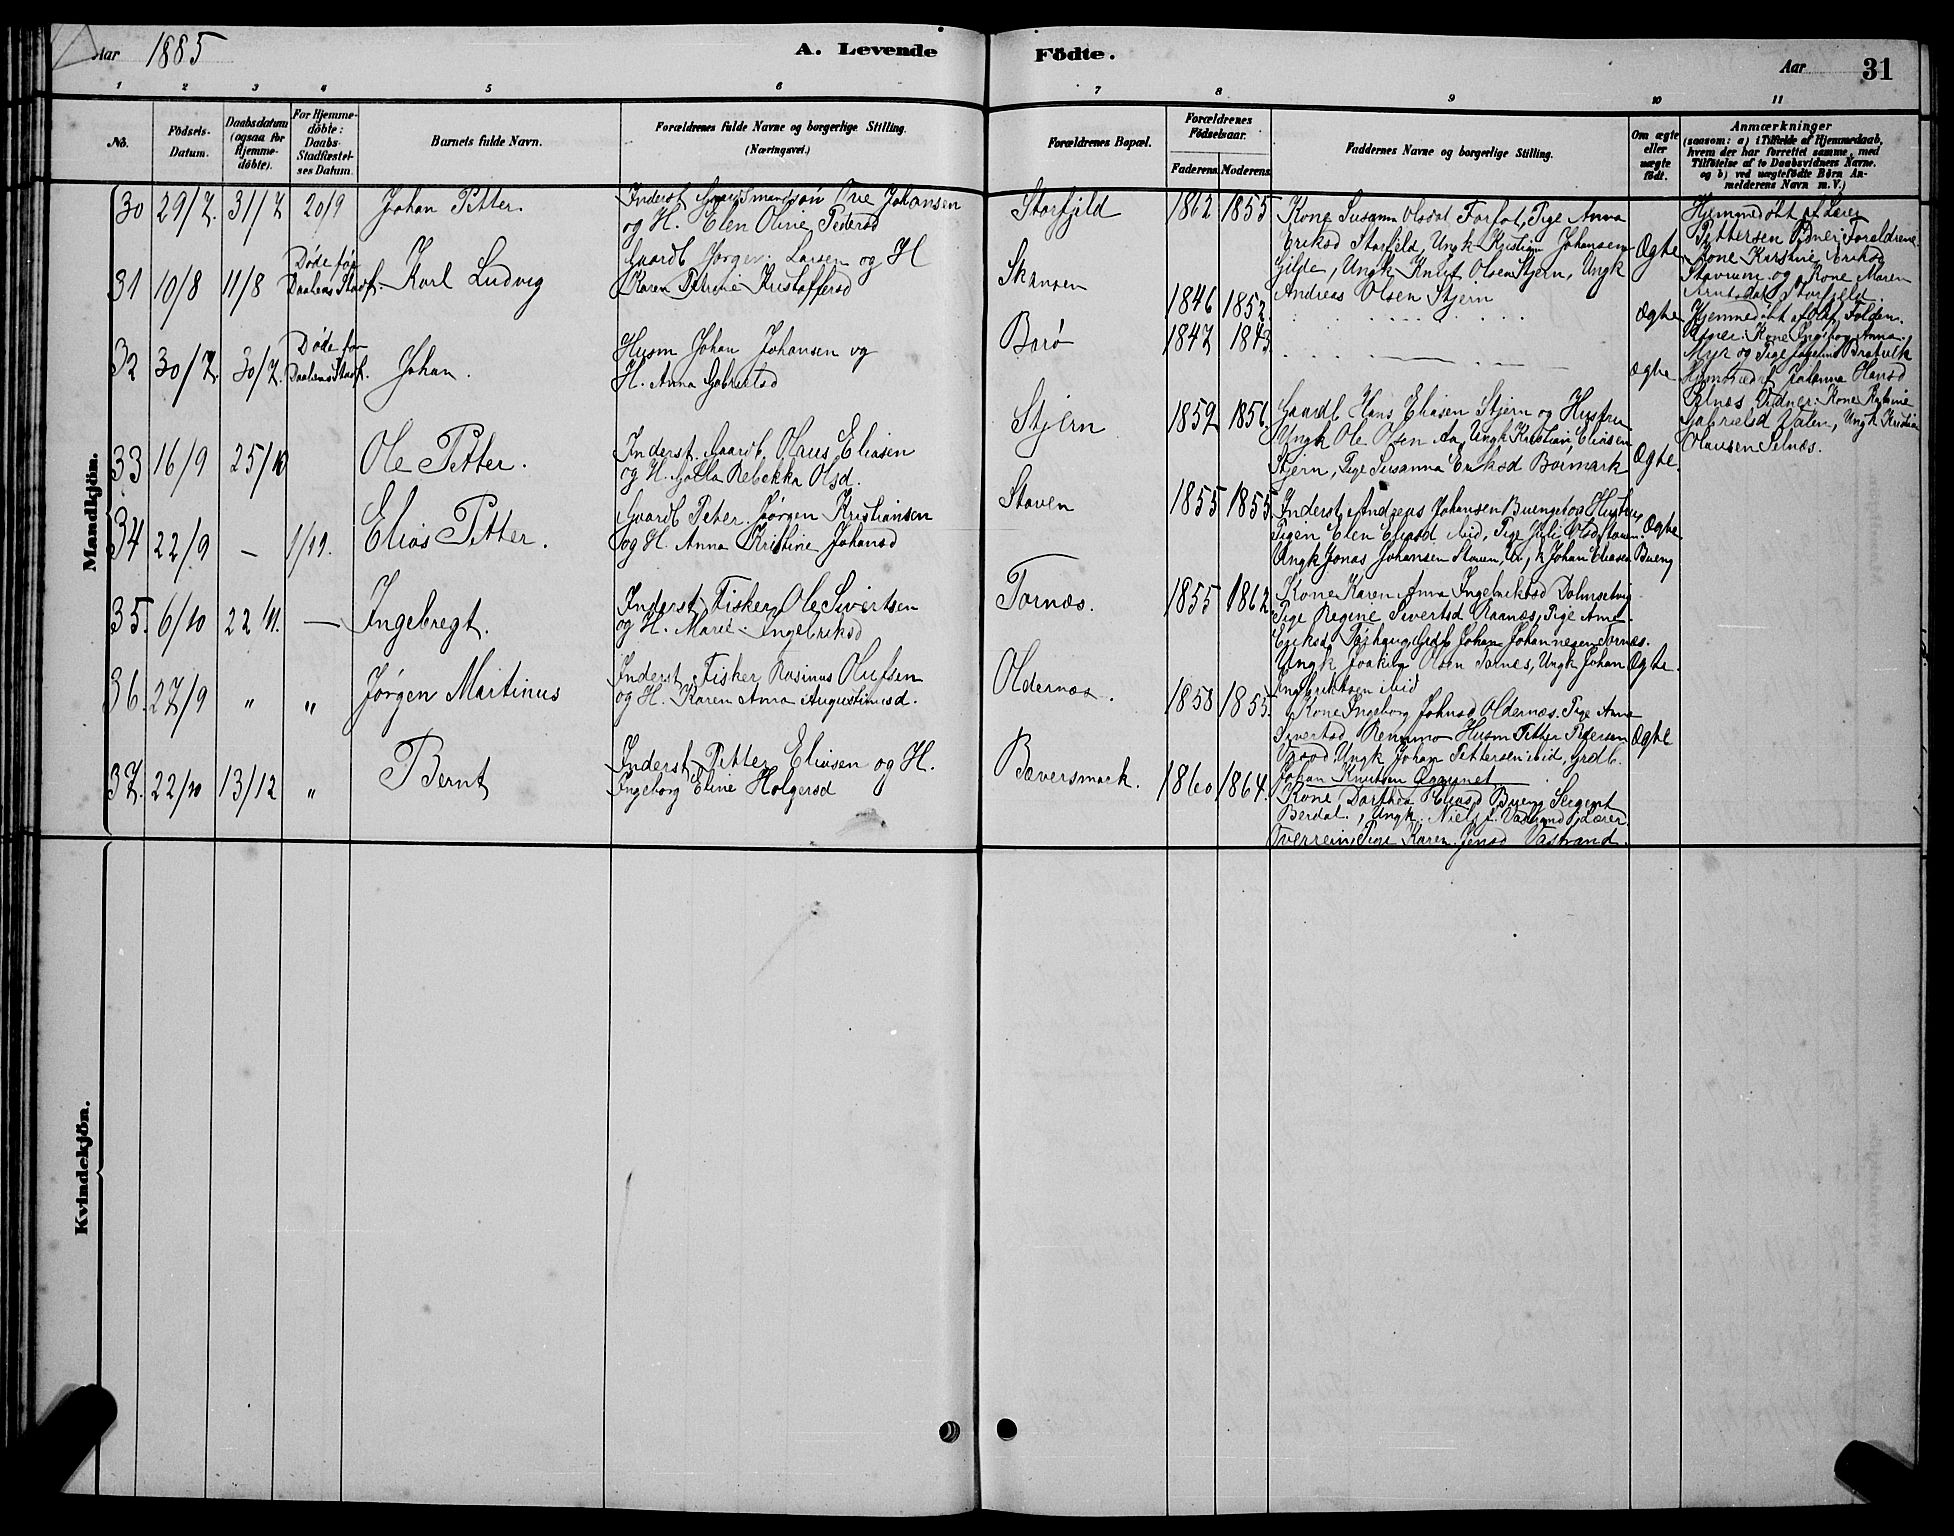 Aar 1885
A. Levende
Födte.
Aar
31
1 2 3 4 5 6 7 8 9 10 11
No.
Födsels-
Datum.
Daabsdatum
(ogsaa for
Hjemme-
döbte).
For Hjemme-
döbte:
Daabs-
Stadfæstel-
ses Datum.
Barnets fulde Navn.
Forældrenes fulde Navne og borgerlige Stilling.
(Næringsvei.)
Forældrenes Bopæl.
Forældrenes
Födselsaar.
Faderens Moderens
Faddernes Navne og borgerlige Stilling.
Om ægte
eller
uægte
födt.
Anmærkninger
(saasom: a) i Tilfælde af Hjemmedaab,
hvem der har forrettet samme, med
Tilföielse af to Daabsvidners Navne.
og b) ved uægtefödte Börn An-
melderens Navn m. V.)
Mandkjön.
30 29/7. 31/7 20/9 Johan Petter.
Inderst Gaardmandssøn Ove Johansen
og H. Elen Oline Pedersd
Storfjeld 1862 1855
Kone Susanna Olsdat Forfot, Pige Anna
Eriksd Storfeld, Ungk Kristian Johansen
Gilde, Ungk Knut Olsen Stjern, Ungk
Andreas Olsen Stjern
Ægte
Hjemmedøbt af Lærer
Pettersen Vidner: Forældrene
Kone Kirstine Eriksd
Stavrum og Kone Maren
Arntsdat, Storfjeld.
31 10/8 11/8
Døde før
Daabens Stadf.
Karl Ludvig
Gaardb Jørgen Larsen og H
Karen Petrine Kristoffersd
Skansen 1846 1852
Ægte
Hjemmedøbt af Olaf Folden.
Vidner: Kone Ingeborg Anna
Myr og Pige Bratvik
32 30/7. 30/7.
Døde før
Daabens Stadf.
Johan.
Husm Johan Johansen og
H. Anna Gabrielsd
Borø 1847 1843
Ægte
Johanna Hansd
Selnes Vidner: Kone
Gabrielsd Valen, Ungk Kristian
Olausen Selnæs.
33 16/9 25/10 Ole Petter.
Inderst Gaardb. Olaus Eliasen
og H. Rebekka Olsd.
Stjern 1859 1856
Gaardb Hans Eliasen Stjern og Hustru
Ungk Ole Olsen Aa, Ungk Kristian Eliasen
Stjern, Pige Susanna Eriksd Børmark
Ægte.
34 22/9 — 1/11. Elias Petter.
Gaardb Peter Jørgen Kristiansen
og H. Anna Kristine Johansd
Staven 1855 1855
Inderst Andreas Johansen Bueng og Hustru
Pigen Elen Eliasd ibid, Pige Juli Olsd Staven
Ungk Jonas Johansen Staven, Johan Eliasen Bueng
Ægte
35. 6/10 22/11. — Ingebregt.
Inderst Fisker Ole Sivertsen
og H. Marie Ingebriktsd
Tornæs. 1855 1862
Kone Karen Anna Ingebriktsd Dolmsetvig
Pige Regine Sivertsd Raanæs, Pige Ane
Eriksd Johan Johannesen Tornæs.
Ungk Joakim Olsen Tornes, Ungk Johan
Ingebriktsen ibid
Ægte.
36. 27/9 " " Jørgen Martinus
Inderst Fisker Rasinus Olufsen
og H. Karen Anna Augustinusd.
Oldernæs. 1858 1855.
Kone Ingeborg Johnsd Oldernæs. Pige Anne
Sivertsd Husm Petter Petersen
Ungk Johan Pettersen ibid, Grdb.
Johan Knutsen
Ægte
37. 22/10 13/12 " Bernt
Inderst Petter Eliasen og H.
Ingeborg Eline Holgersd
Bæversmark. 1860 1864.
Kone Dorthea Eliasd Bueng Sergent
Berdal, Ungk Niels Vastrand, Lærer
Overrein, Pige Karen Jensd Vastrand.
Kvindekjön.